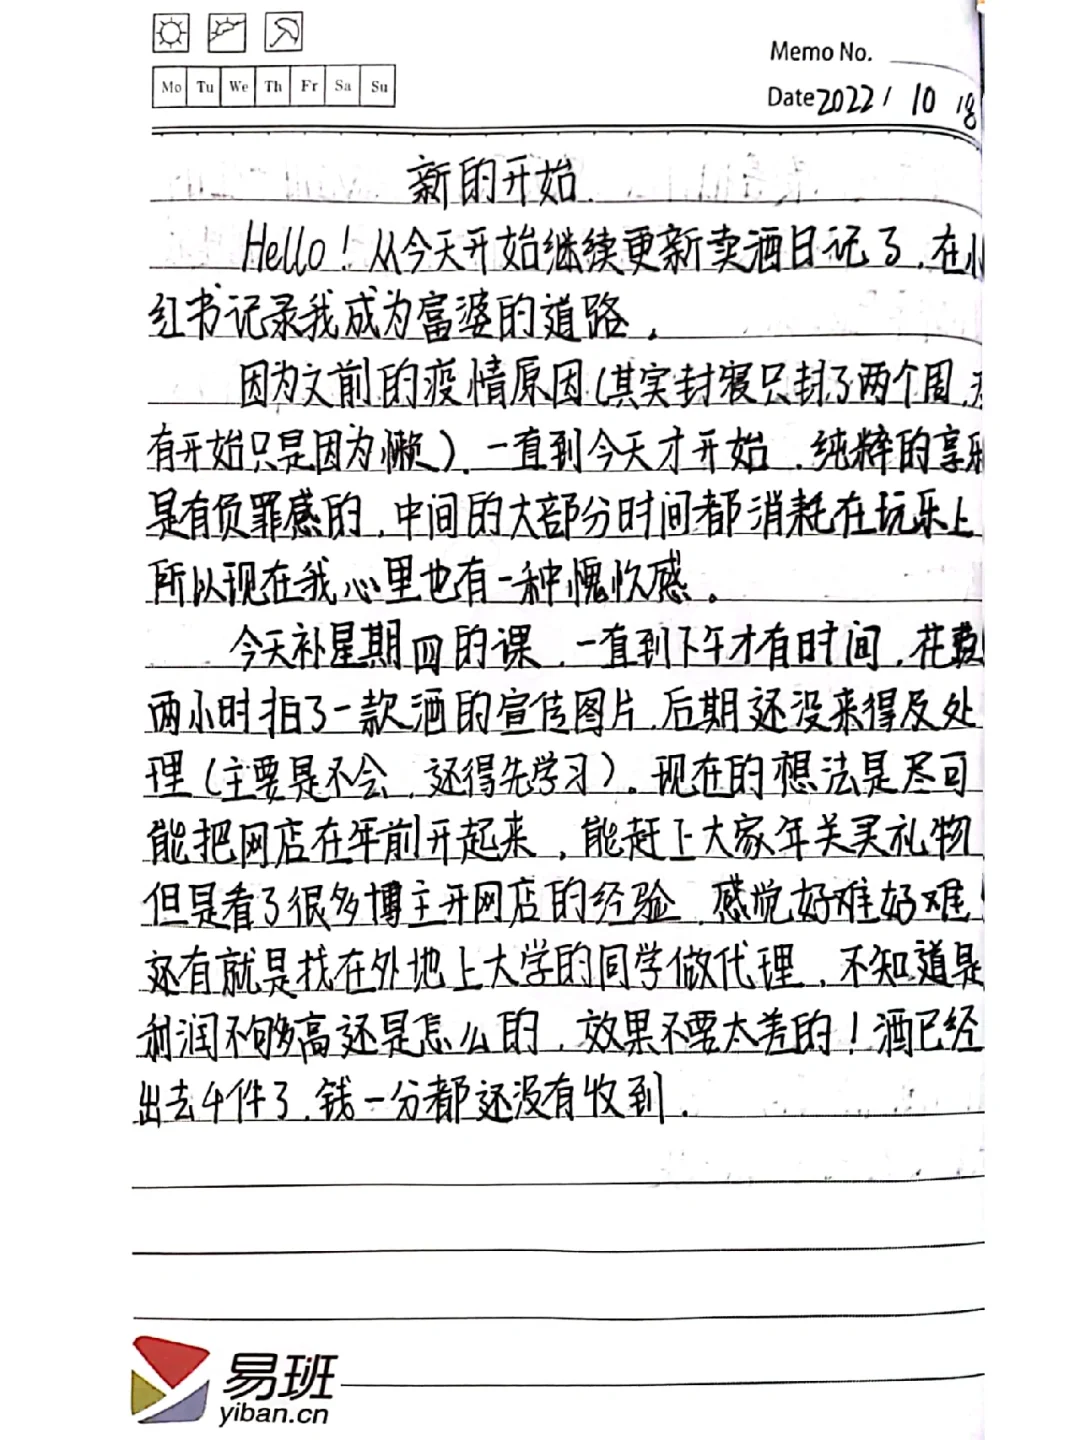 Memo No.
Mo Tu We Th Fr Sa Su
Date 2022/ 10 18
新的开始.
Hello！从今天开始继续更新卖酒日记了，在小
红书记录我成为富婆的道路。
因为文前的疫情原因(其实封寝只封了两个周，
有开始只是因为懒)，一直到今天才开始，纯粹的享乐
是有负罪感的，中间的大部分时间都消耗在玩乐上
所以现在我心里也有一种愧疚感。
今天补星期四的课，一直到下午才有时间，花费
两小时拍了一款酒的宣传图片，后期还没来得及处
理(主要是不会，还得先学习)。现在的想法是尽可
能把网店在年前开起来，能赶上大家年关买礼物
但是看了很多博主开网店的经验，感觉好难好难！
还有就是找在外地上大学的同学做代理，不知道是
利润不够高还是怎么的，效果不要太差的！酒已经
出去4件了，钱一分都还没有收到.
易班
yiban.cn